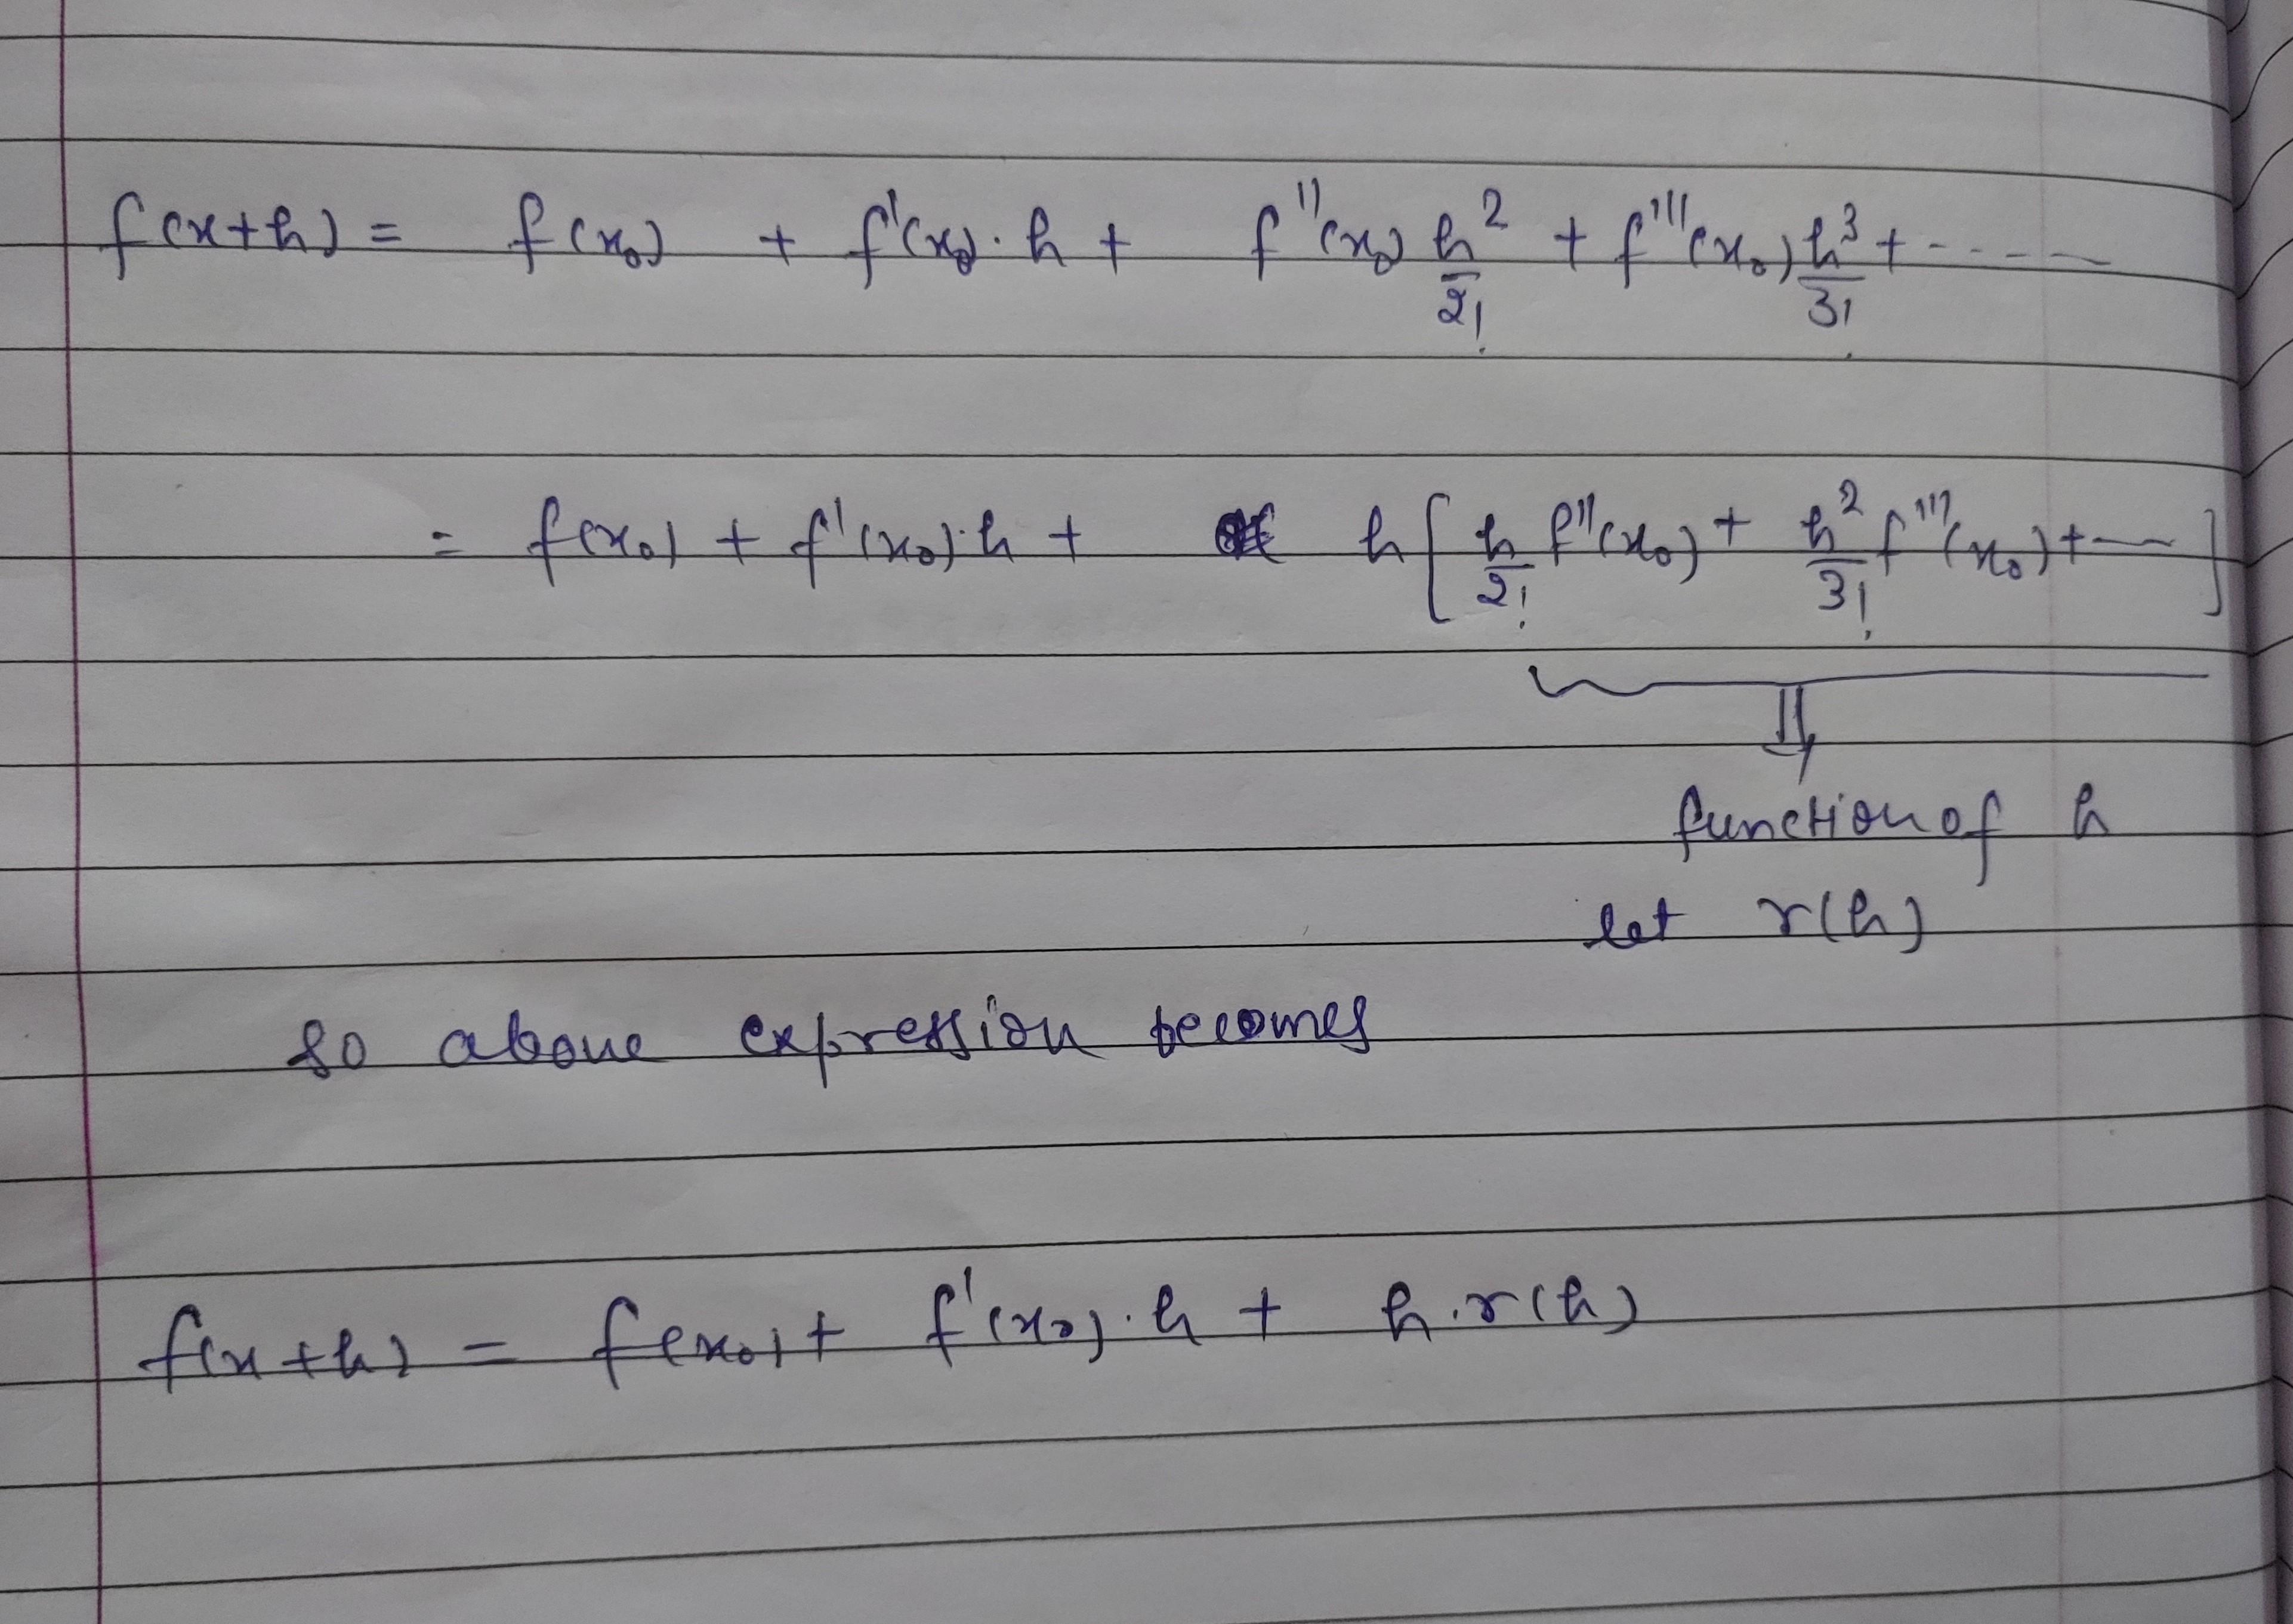 f(x+h) = f(x₀) + f'(x₀)·h + f''(x₀) h²/2! + f'''(x₀) h³/3! + - - - -
= f(x₀) + f'(x₀)·h + h[h/2! f''(x₀) + h²/3! f'''(x₀) + --]
function of h
let r(h)
so above expression becomes
f(x+h) = f(x₀) + f'(x₀)·h + h.r(h)